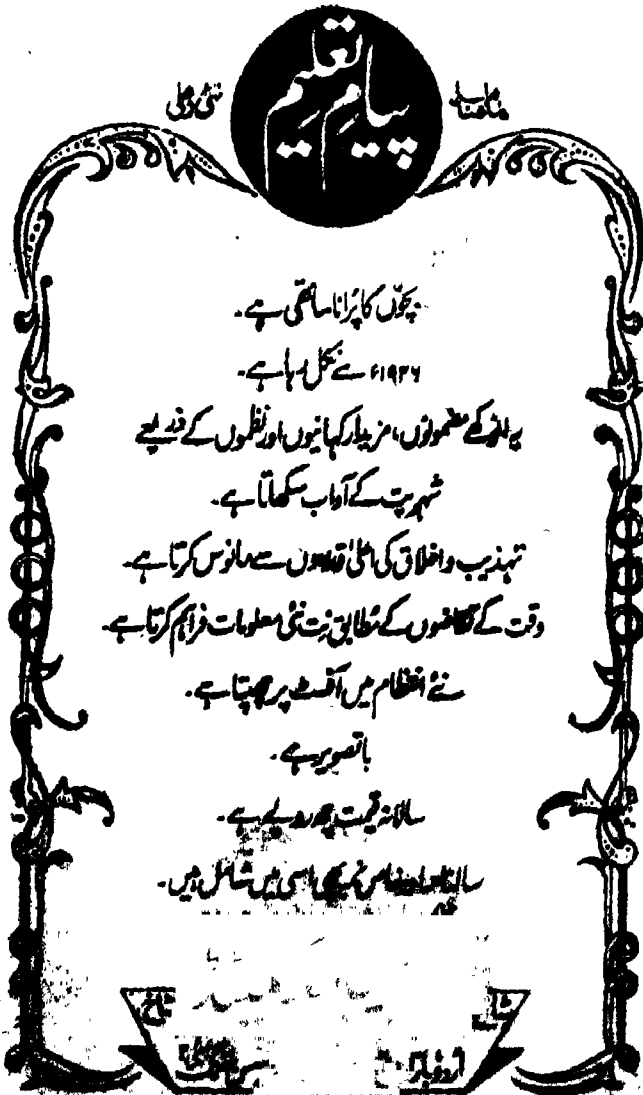 ماہنامہ پیامِ تعلیم نئی دہلی
بچّوں کا پُرانا ساتھی ہے۔
۱۹۲۶ء سے نکل رہا ہے۔
یہ مضمونوں، مزیدار کہانیوں اور نظموں کے ذریعے
شہریت کے آداب سکھاتا ہے۔
تہذیب و اخلاق کی اعلیٰ قدروں سے مانوس کرتا ہے۔
وقت کے تقاضوں کے مُطابق نِت نئی معلومات فراہم کرتا ہے۔
نئے انتظام میں آفسٹ پر چھپتا ہے۔
باتصویر ہے۔
سالانہ قیمت چھ روپے ہے۔
سالنامہ اور خاص نمبر بھی اسی میں شامل ہیں۔
شاخ
اردو بازار